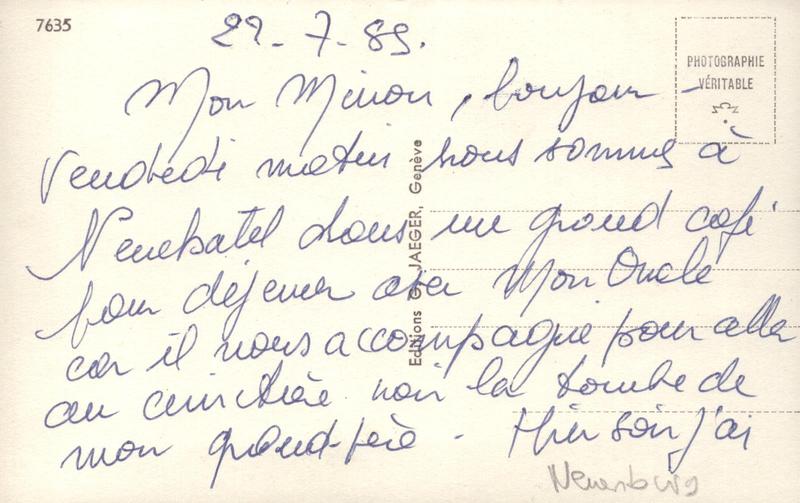 7635
29-7-89.
PHOTOGRAPHIE
VÉRITABLE
Mon Minon, bonjour -
Vendredi matin nous sommes à
Neuchatel dans un grand café
pour déjeuner avec Mon Oncle
car il nous accompagne pour aller
au cimetière voir la tombe de
mon grand-père - Hier soir j'ai
Editions G. JAEGER, Genève
Neuenburg